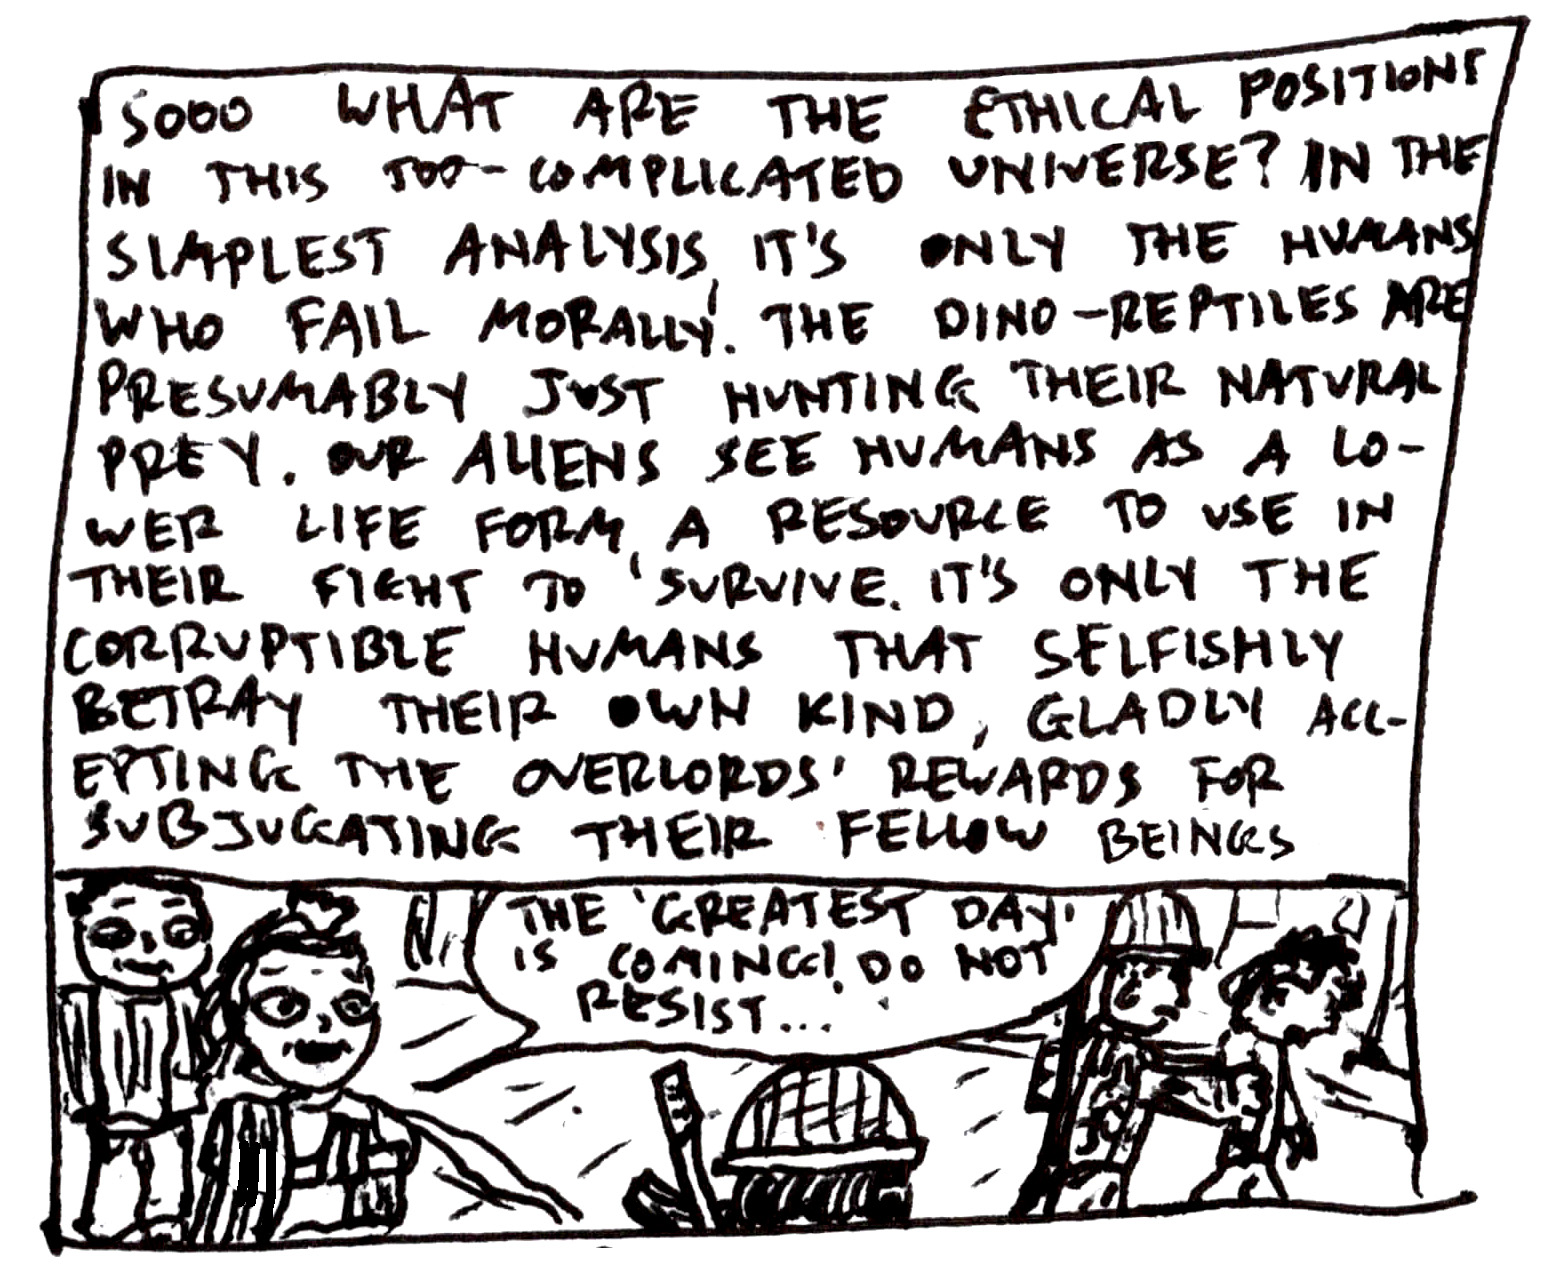 SOOO WHAT ARE THE ETHICAL POSITIONS
IN THIS TOO-COMPLICATED UNIVERSE? IN THE
SIMPLEST ANALYSIS, IT'S ONLY THE HUMANS
WHO FAIL MORALLY. THE DINO-REPTILES ARE
PRESUMABLY JUST HUNTING THEIR NATURAL
PREY. OUR ALIENS SEE HUMANS AS A LO-
WER LIFE FORM, A RESOURCE TO USE IN
THEIR FIGHT TO SURVIVE. IT'S ONLY THE
CORRUPTIBLE HUMANS THAT SELFISHLY
BETRAY THEIR OWN KIND, GLADLY ACC-
EPTING THE OVERLORDS' REWARDS FOR
SUBJUGATING THEIR FELLOW BEINGS
THE 'GREATEST DAY'
IS COMING! DO NOT
RESIST...